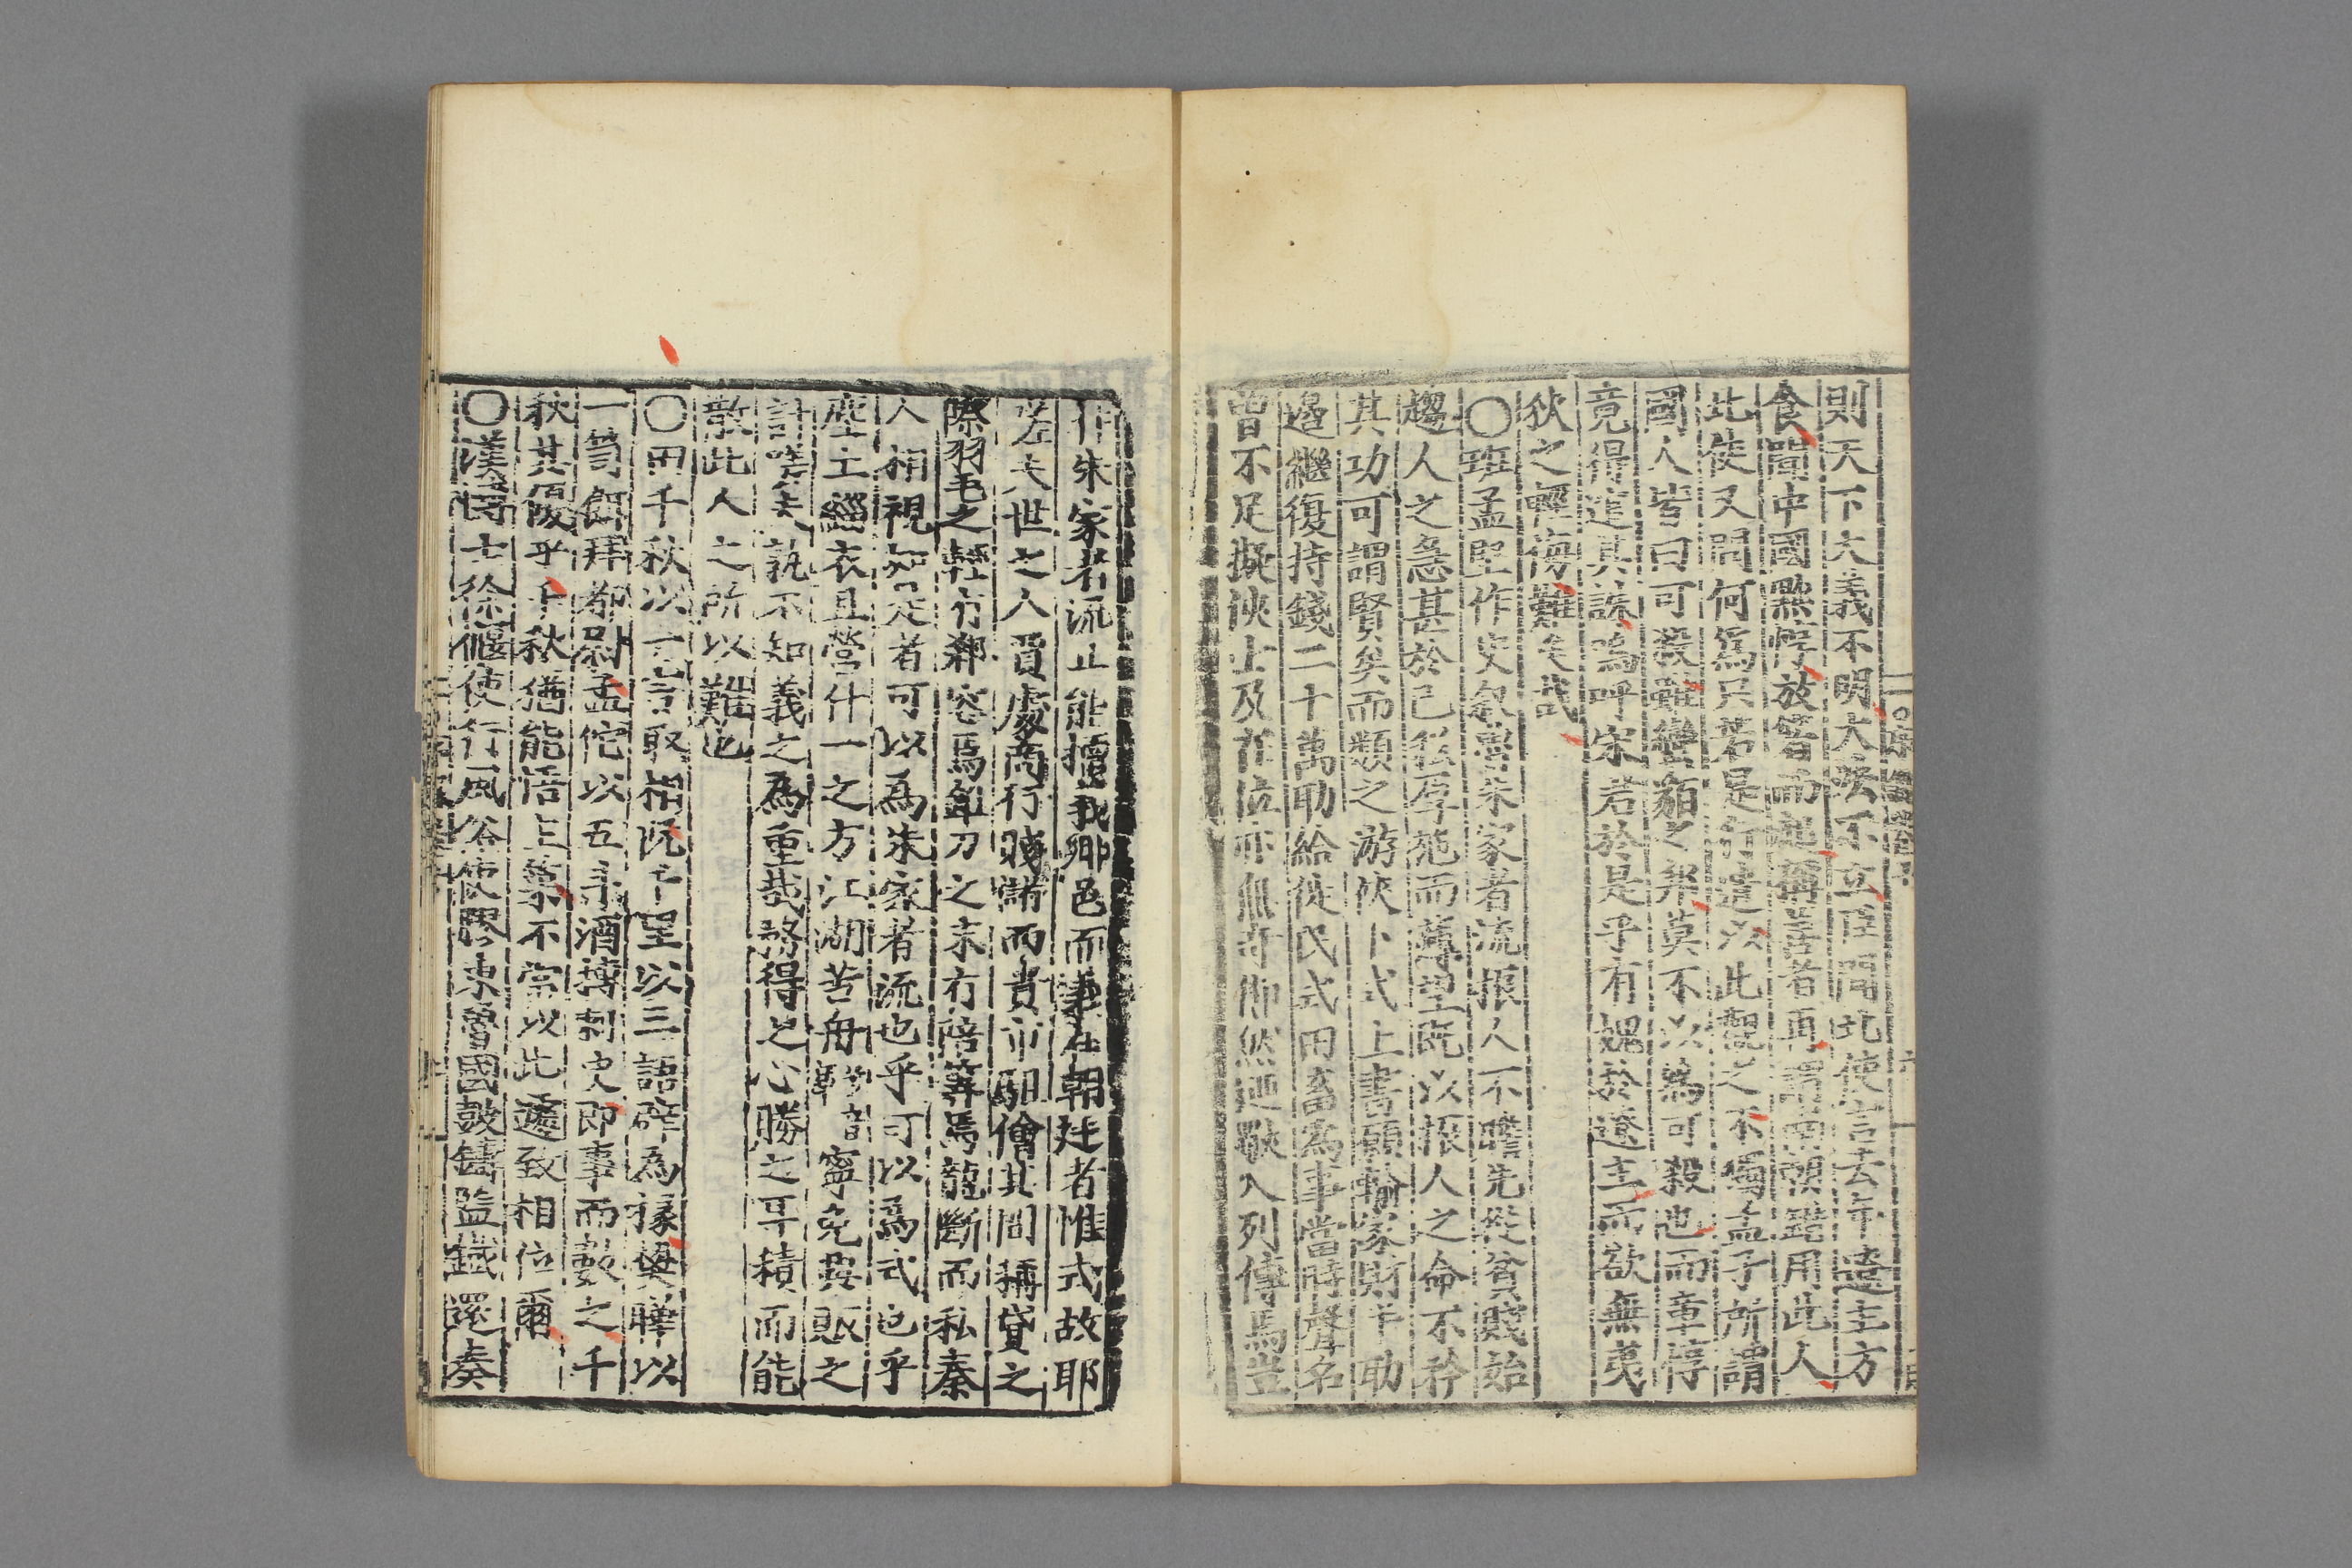 則天下大義不明大法不立臣聞北使言去年遼主方
食聞中國黜惇放箸而起稱善者再謂南朝錯用此人
此使又問何為只若是行遣以此觀之不獨孟子所謂
國人皆曰可殺雖蠻貊之邦莫不以為可殺也而章惇
竟得逭其誅嗚呼宋若於是乎有媿於遼主而欲無夷
狄之輕侮難矣哉
〇班孟堅作史叙魯朱家者流振人不贍先從貧賤始
趨人之急甚於己私厚施而薄望既以振人之命不矜
其功可謂賢矣而類之游俠卜式上書願輸家財半助
邊繼復持錢二十萬助給徙民式田畜為事當時聲名
曾不足擬俠士及在位亦無奇節然迺獸入列傳焉豈
作朱家者流止能擅我鄉邑而事在朝廷者惟式故耶
嗟夫世之人質處商行賤儲而貴市駔儈其間稱貸之
際羽毛之輕有鄰密焉錐刀之末有倍筭焉龍斷而私秦
人相視知足者可以為朱家者流也乎可以為式也乎
塵土緇衣且營什一之方江湖苦舟寧免買販之
計嗟矣孰不知義之為重哉務得之心勝之耳積而能
散此人之所以難也
〇田千秋以一言取相阮千里以三語辟為掾樊曄以
一笥餌拜都尉孟佗以五斗酒博刺史即事而數之千
秋其優乎千秋猶能悟上第不當以此遽致相位爾
〇漢博士徐偃使行風俗使膠東魯國鼓鑄監鐵還奏